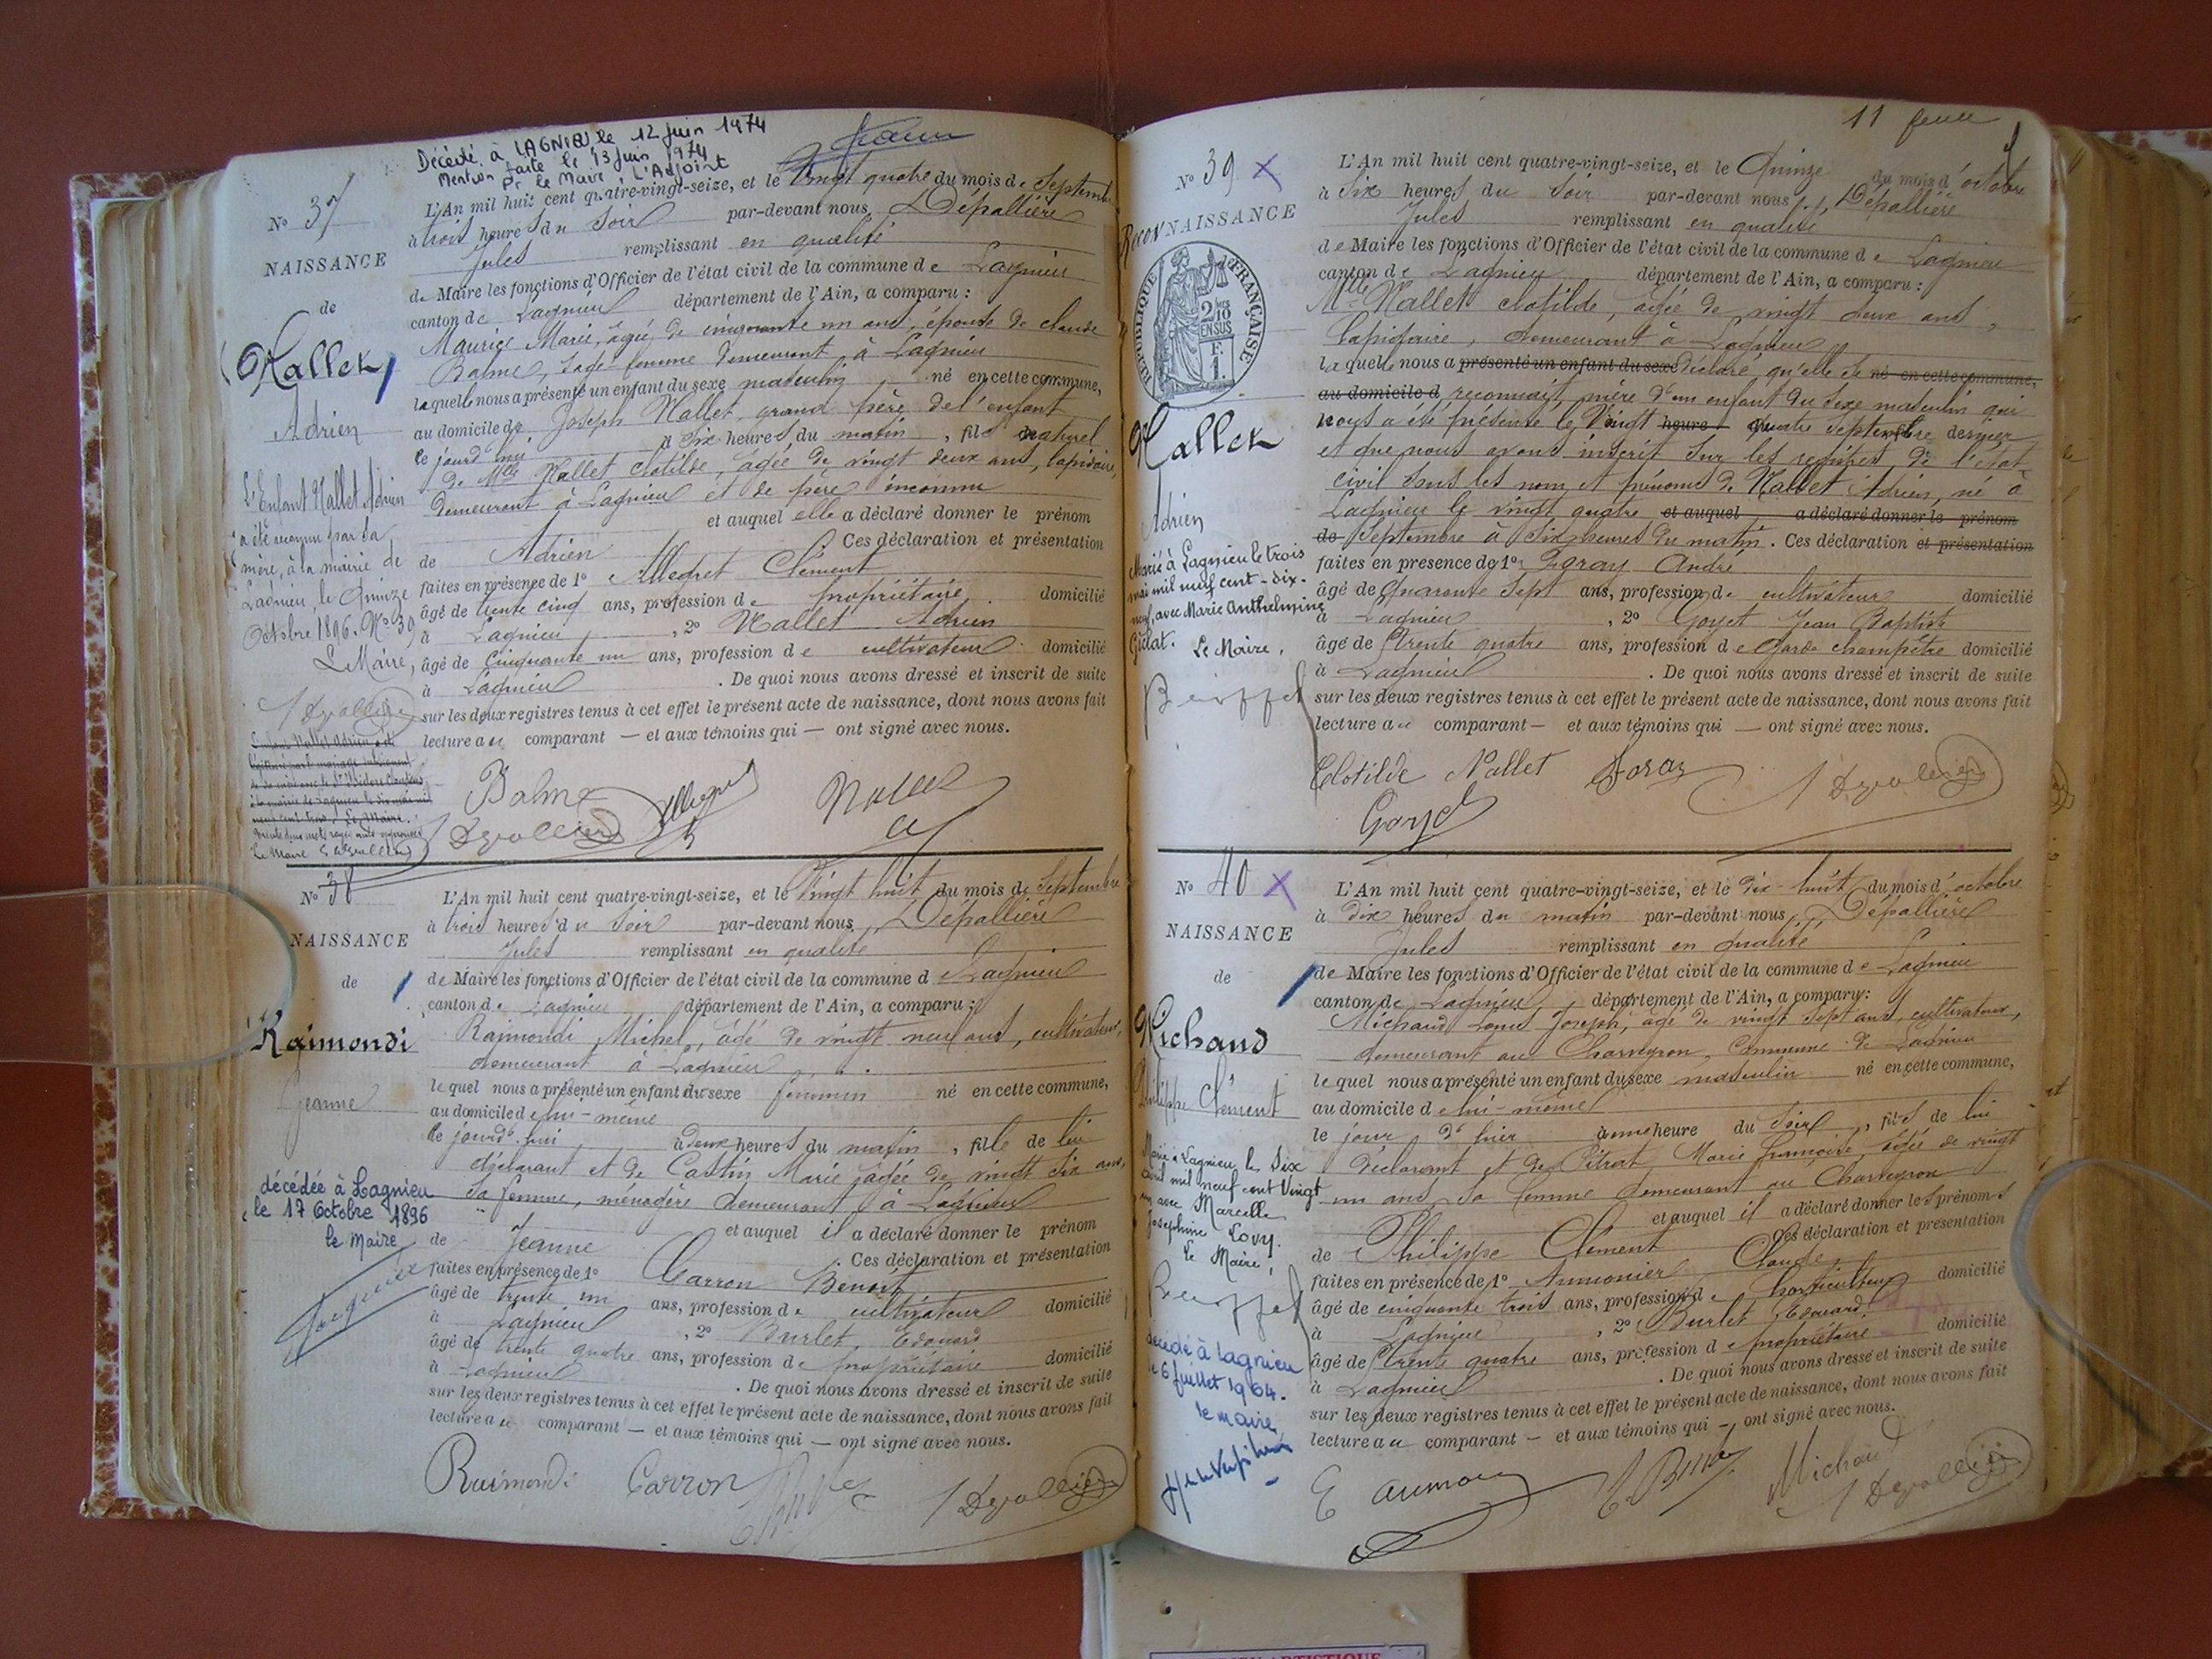 Décédé à LAGNIEU le 12 juin 1974
Mention faite le 13 juin 1974
Pr le Maire, L'Adjoint
N° 37
NAISSANCE
de
Nallet
Adrien
L'Enfant Nallet Adrien
a été reconnu par sa
mère, à la mairie de
Lagnieu, le Quinze
Octobre 1896. N° 39
Le Maire,
L'An mil huit cent quatre-vingt-seize, et le Vingt quatre du mois de Septembre
à trois heures du Soir par-devant nous, Dépallière
Jules remplissant en qualité
de Maire les fonctions d'Officier de l'état civil de la commune de Lagnieu
canton de Lagnieu département de l'Ain, a comparu :
Maurice Marie, âgée de cinquante un ans, épouse de Claude
Balme, sage-femme demeurant à Lagnieu
laquelle nous a présenté un enfant du sexe masculin né en cette commune,
au domicile de Joseph Nallet grand père de l'enfant
le jourd'hui à Six heures du matin, fils naturel
de Mlle Nallet Clotilde, âgée de vingt deux ans, lapidaire,
demeurant à Lagnieu et de père inconnu
et auquel elle a déclaré donner le prénom
de Adrien Ces déclaration et présentation
faites en présence de 1° Allegret Clément
âgé de trente cinq ans, profession de propriétaire domicilié
à Lagnieu, 2° Nallet Adrien
âgé de Cinquante un ans, profession de cultivateur domicilié
à Lagnieu. De quoi nous avons dressé et inscrit de suite
sur les deux registres tenus à cet effet le présent acte de naissance, dont nous avons fait
lecture au comparant — et aux témoins qui — ont signé avec nous.
Balme
N° 38
NAISSANCE
de
Raimondi
Jeanne
décédée à Lagnieu
le 17 Octobre 1896
le Maire
L'An mil huit cent quatre-vingt-seize, et le Vingt huit du mois de Septembre
à trois heures du Soir par-devant nous, Dépallière
Jules remplissant en qualité
de Maire les fonctions d'Officier de l'état civil de la commune de Lagnieu
canton de Lagnieu département de l'Ain, a comparu :
Raimondi Michel, âgé de vingt neuf ans, cultivateur,
demeurant à Lagnieu
lequel nous a présenté un enfant du sexe féminin né en cette commune,
au domicile de lui-même
le jourd'hui à deux heures du matin, fille de lui
déclarant et de Castin Marie âgée de vingt six ans,
sa femme, ménagère demeurant à Lagnieu
et auquel il a déclaré donner le prénom
de Jeanne Ces déclaration et présentation
faites en présence de 1° Carron Benoît
âgé de trente un ans, profession de cultivateur domicilié
à Lagnieu, 2° Burlet Edouard
âgé de trente quatre ans, profession de propriétaire domicilié
à Lagnieu. De quoi nous avons dressé et inscrit de suite
sur les deux registres tenus à cet effet le présent acte de naissance, dont nous avons fait
lecture au comparant — et aux témoins qui — ont signé avec nous.
Raimondi Carron
11
N° 39
RECONNAISSANCE
RÉPUBLIQUE FRANÇAISE
2/10 EN SUS
F. 1.
Nallet
Adrien
Marié à Lagnieu le trois
mai mil neuf cent-dix-
neuf, avec Marie Anthelmine
Gidat.
Le Maire,
L'An mil huit cent quatre-vingt-seize, et le Quinze du mois d'octobre
à Six heures du Soir par-devant nous, Dépallière
Jules remplissant en qualité
de Maire les fonctions d'Officier de l'état civil de la commune de Lagnieu
canton de Lagnieu département de l'Ain, a comparu :
Mlle Nallet Clotilde, âgée de vingt deux ans,
lapidaire, demeurant à Lagnieu
laquelle nous a présenté un enfant du sexe déclaré qu'elle se né en cette commune,
au domicile d reconnait mère d'un enfant du sexe masculin qui
nous a été présenté le Vingt heure quatre Septembre dernier
et que nous avons inscrit sur les registres de l'état-
civil sous les nom et prénoms de Nallet Adrien, né à
Lagnieu le vingt quatre et auquel a déclaré donner le prénom
de Septembre à Six heures du matin. Ces déclaration et présentation
faites en présence de 1° André
âgé de Quarante Sept ans, profession de cultivateur domicilié
à Lagnieu, 2° Goyet Jean Baptiste
âgé de trente quatre ans, profession de Garde champêtre domicilié
à Lagnieu. De quoi nous avons dressé et inscrit de suite
sur les deux registres tenus à cet effet le présent acte de naissance, dont nous avons fait
lecture au comparant — et aux témoins qui — ont signé avec nous.
Clotilde Nallet
Goyet
N° 40
NAISSANCE
de
Michaud
Philippe Clément
Marié à Lagnieu le Six
avril mil neuf cent Vingt
un avec Marcelle
Josephine Lovy.
Le Maire,
décédé à Lagnieu
le 6 juillet 1964.
le maire
L'An mil huit cent quatre-vingt-seize, et le dix-huit du mois d'octobre
à dix heures du matin par-devant nous, Dépallière
Jules remplissant en qualité
de Maire les fonctions d'Officier de l'état civil de la commune de Lagnieu
canton de Lagnieu, département de l'Ain, a comparu :
Michaud Louis Joseph, âgé de vingt sept ans, cultivateur,
demeurant au Charveyron, Commune de Lagnieu
lequel nous a présenté un enfant du sexe masculin né en cette commune,
au domicile de lui-même
le jour d'hier à une heure du Soir, fils de lui
déclarant et de Pitrat Marie Françoise, âgée de vingt
un ans, sa femme demeurant au Charveyron
et auquel il a déclaré donner les prénoms
de Philippe Clément Ces déclaration et présentation
faites en présence de 1° Aumonier Claude
âgé de cinquante trois ans, profession de horticulteur domicilié
à Lagnieu, 2° Burlet Edouard
âgé de trente quatre ans, profession de propriétaire domicilié
à Lagnieu. De quoi nous avons dressé et inscrit de suite
sur les deux registres tenus à cet effet le présent acte de naissance, dont nous avons fait
lecture au comparant — et aux témoins qui — ont signé avec nous.
Michaud